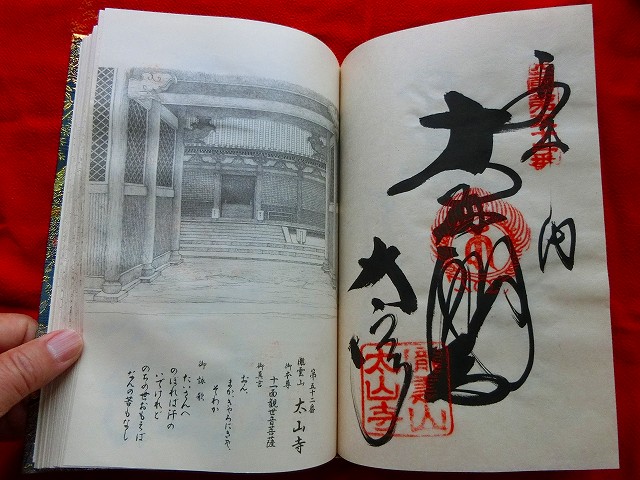 㐧五十二番
瀧雲山 太山寺
御本尊
十一面観世音菩薩
御真言
おん、
まかきゃろにきゃ、
そわか
御詠歌
たいさんへ
のぼれば汗の
いでけれど
のちの世おもえば
なんの苦もなし
奉納
太山寺
太山寺